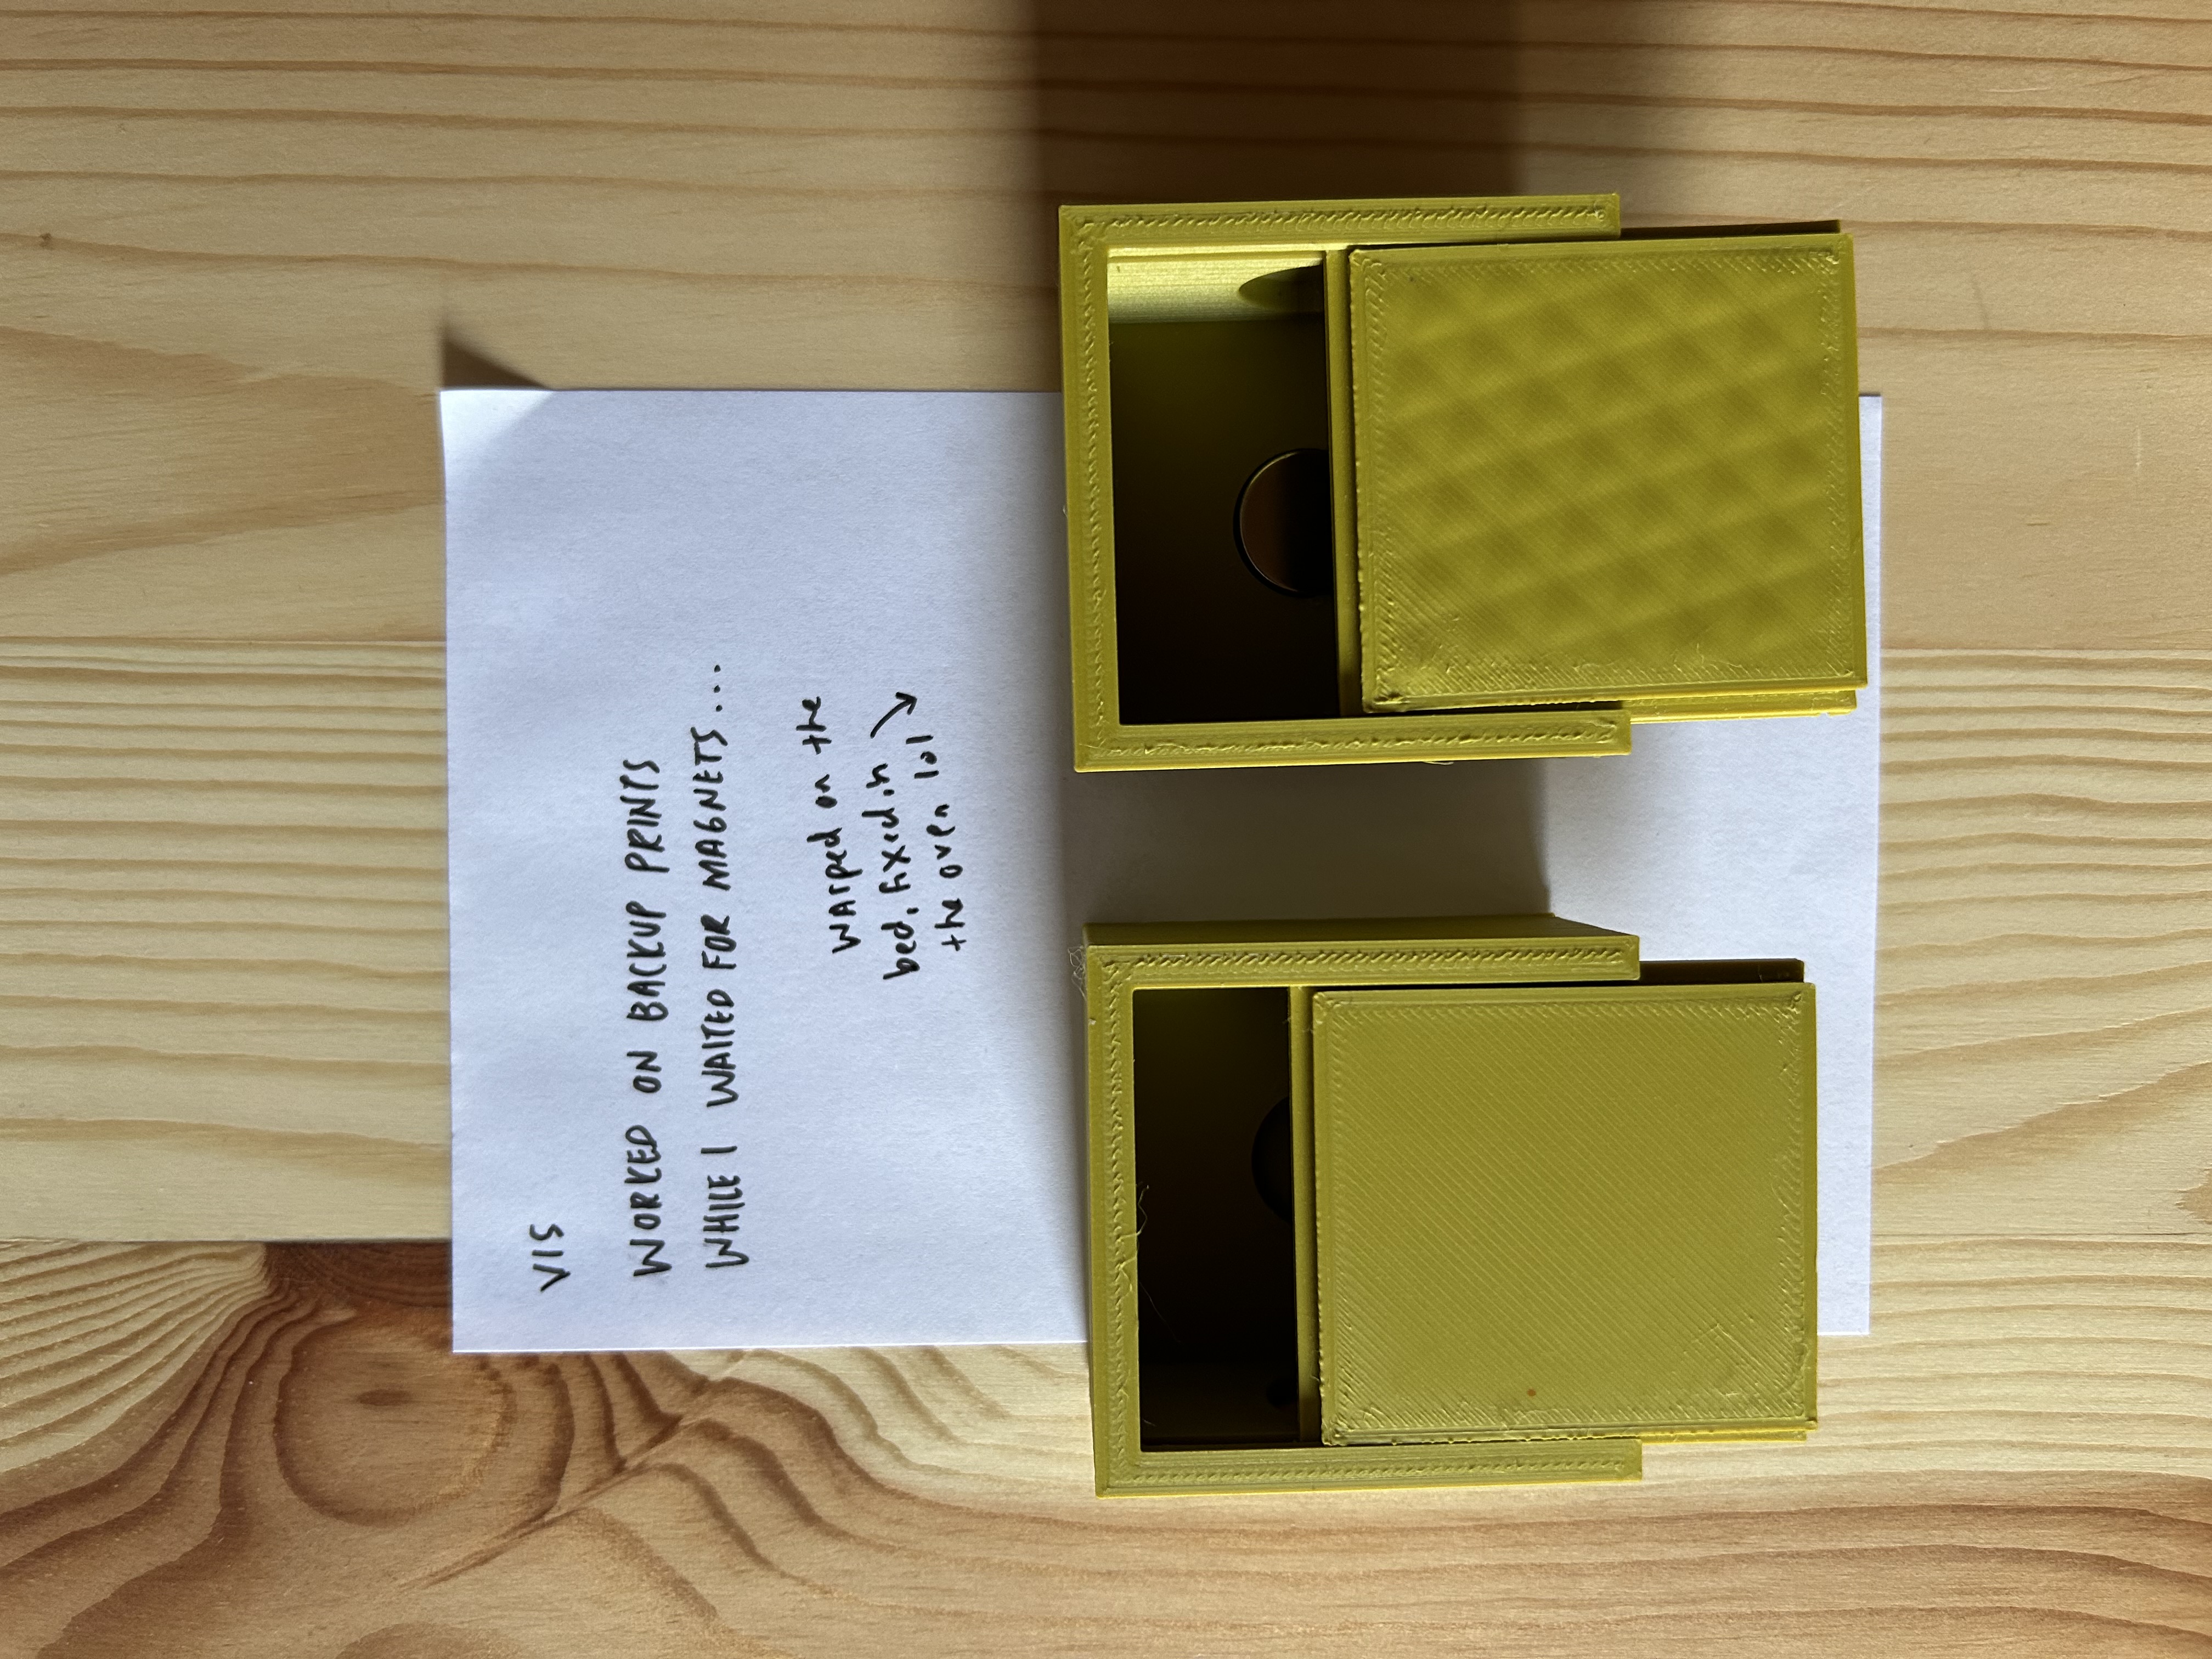 V15
WORKED ON BACKUP PRINTS
WHILE I WAITED FOR MAGNETS...
WArped on the
bed, fixed in
the oven lol